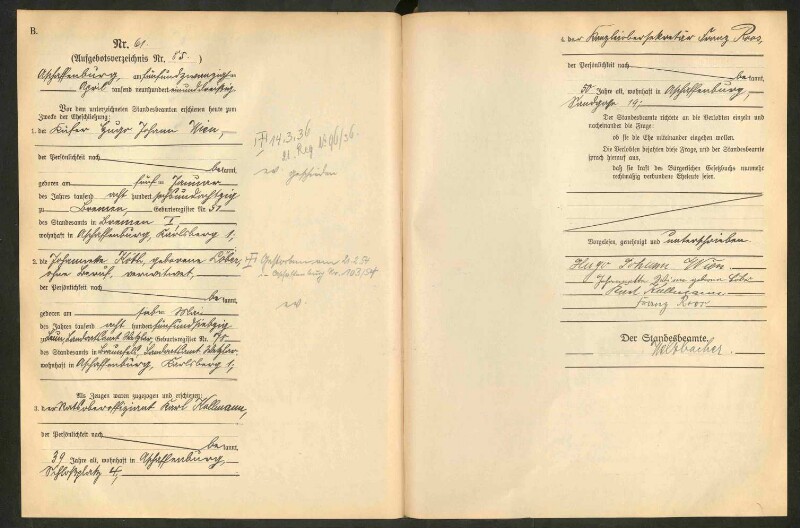 B.
Nr. 61.
(Aufgebotsverzeichnis Nr. 85.)
Aschaffenburg, am fünfundzwanzigsten
April tausend neunhundert einunddreißig
Vor dem unterzeichneten Standesbeamten erschienen heute zum
Zwecke der Eheschließung:
1. der Küfer Hugo Johann Wien,
der Persönlichkeit nach
bekannt,
geboren am fünften Januar
des Jahres tausend acht hundert sechsundachtzig
zu Bremen, Geburtsregister Nr. 51
des Standesamts in Bremen I,
wohnhaft in Aschaffenburg, Karlsberg 1,
2. die Johannette Kött, geborene Löber,
ohne Beruf, verwitwet,
der Persönlichkeit nach
bekannt,
geboren am Mai
des Jahres tausend acht hundert fünfundsiebzig
Geburtsregister Nr. 40
des Standesamts in Braunfels, Landratsamt Wetzlar
wohnhaft in Aschaffenburg, Karlsberg 1,
Als Zeugen waren zugezogen und erschienen:
3. der Karl Kullmann,
der Persönlichkeit nach
bekannt,
39 Jahre alt, wohnhaft in Aschaffenburg,
Schloßplatz 4,
14.3.36
geschieden
Gestorben am
in Aschaffenburg No. 103/54
4. der Kanzleiobersekretär Franz Roos,
der Persönlichkeit nach
bekannt,
50 Jahre alt, wohnhaft in Aschaffenburg,
Sandgasse 19,
Der Standesbeamte richtete an die Verlobten einzeln und
nacheinander die Frage:
ob sie die Ehe miteinander eingehen wollen.
Die Verlobten bejahten diese Frage, und der Standesbeamte
sprach hierauf aus,
daß sie kraft des Bürgerlichen Gesetzbuchs nunmehr
rechtmäßig verbundene Eheleute seien.
Vorgelesen, genehmigt und unterschrieben
Hugo Johann Wien
Johannette Wien geborene Löber
Karl Kullmann
Franz Roos
Der Standesbeamte.